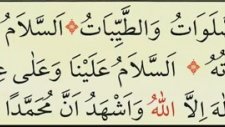 لَوَاتُ وَالطَّيِّبَاتُ * اَلسَّلَامُ
تُهُ * اَلسَّلَامُ عَلَيْنَا وَعَلٰى عِ
لٰهَ اِلَّا اللّٰهُ وَاَشْهَدُ اَنَّ مُحَمَّدًا